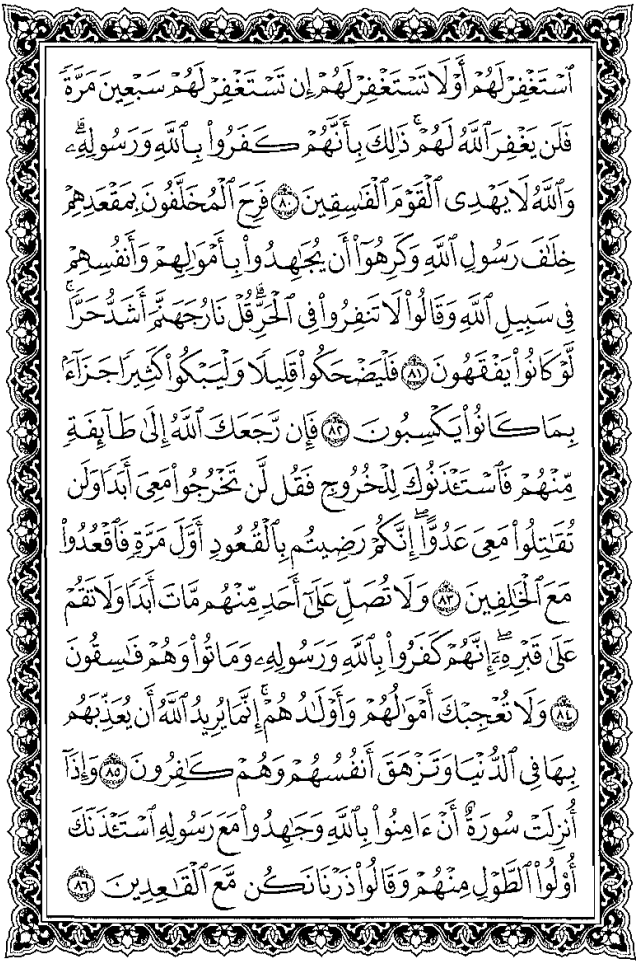 ٱسۡتَغۡفِرۡ لَهُمۡ أَوۡ لَا تَسۡتَغۡفِرۡ لَهُمۡ إِن تَسۡتَغۡفِرۡ لَهُمۡ سَبۡعِينَ مَرَّةٗ
فَلَن يَغۡفِرَ ٱللَّهُ لَهُمۡۚ ذَٰلِكَ بِأَنَّهُمۡ كَفَرُواْ بِٱللَّهِ وَرَسُولِهِۦۗ
وَٱللَّهُ لَا يَهۡدِي ٱلۡقَوۡمَ ٱلۡفَٰسِقِينَ ٨٠ فَرِحَ ٱلۡمُخَلَّفُونَ بِمَقۡعَدِهِمۡ
خِلَٰفَ رَسُولِ ٱللَّهِ وَكَرِهُوٓاْ أَن يُجَٰهِدُواْ بِأَمۡوَٰلِهِمۡ وَأَنفُسِهِمۡ
فِي سَبِيلِ ٱللَّهِ وَقَالُواْ لَا تَنفِرُواْ فِي ٱلۡحَرِّۗ قُلۡ نَارُ جَهَنَّمَ أَشَدُّ حَرّٗاۚ
لَّوۡ كَانُواْ يَفۡقَهُونَ ٨١ فَلۡيَضۡحَكُواْ قَلِيلٗا وَلۡيَبۡكُواْ كَثِيرٗا جَزَآءَۢ
بِمَا كَانُواْ يَكۡسِبُونَ ٨٢ فَإِن رَّجَعَكَ ٱللَّهُ إِلَىٰ طَآئِفَةٖ
مِّنۡهُمۡ فَٱسۡتَـٔۡذَنُوكَ لِلۡخُرُوجِ فَقُل لَّن تَخۡرُجُواْ مَعِيَ أَبَدٗا وَلَن
تُقَٰتِلُواْ مَعِيَ عَدُوًّاۖ إِنَّكُمۡ رَضِيتُم بِٱلۡقُعُودِ أَوَّلَ مَرَّةٖ فَٱقۡعُدُواْ
مَعَ ٱلۡخَٰلِفِينَ ٨٣ وَلَا تُصَلِّ عَلَىٰٓ أَحَدٖ مِّنۡهُم مَّاتَ أَبَدٗا وَلَا تَقُمۡ
عَلَىٰ قَبۡرِهِۦٓۖ إِنَّهُمۡ كَفَرُواْ بِٱللَّهِ وَرَسُولِهِۦ وَمَاتُواْ وَهُمۡ فَٰسِقُونَ
٨٤ وَلَا تُعۡجِبۡكَ أَمۡوَٰلُهُمۡ وَأَوۡلَٰدُهُمۡۚ إِنَّمَا يُرِيدُ ٱللَّهُ أَن يُعَذِّبَهُم
بِهَا فِي ٱلدُّنۡيَا وَتَزۡهَقَ أَنفُسُهُمۡ وَهُمۡ كَٰفِرُونَ ٨٥ وَإِذَآ
أُنزِلَتۡ سُورَةٌ أَنۡ ءَامِنُواْ بِٱللَّهِ وَجَٰهِدُواْ مَعَ رَسُولِهِ ٱسۡتَـٔۡذَنَكَ
أُوْلُواْ ٱلطَّوۡلِ مِنۡهُمۡ وَقَالُواْ ذَرۡنَا نَكُن مَّعَ ٱلۡقَٰعِدِينَ ٨٦